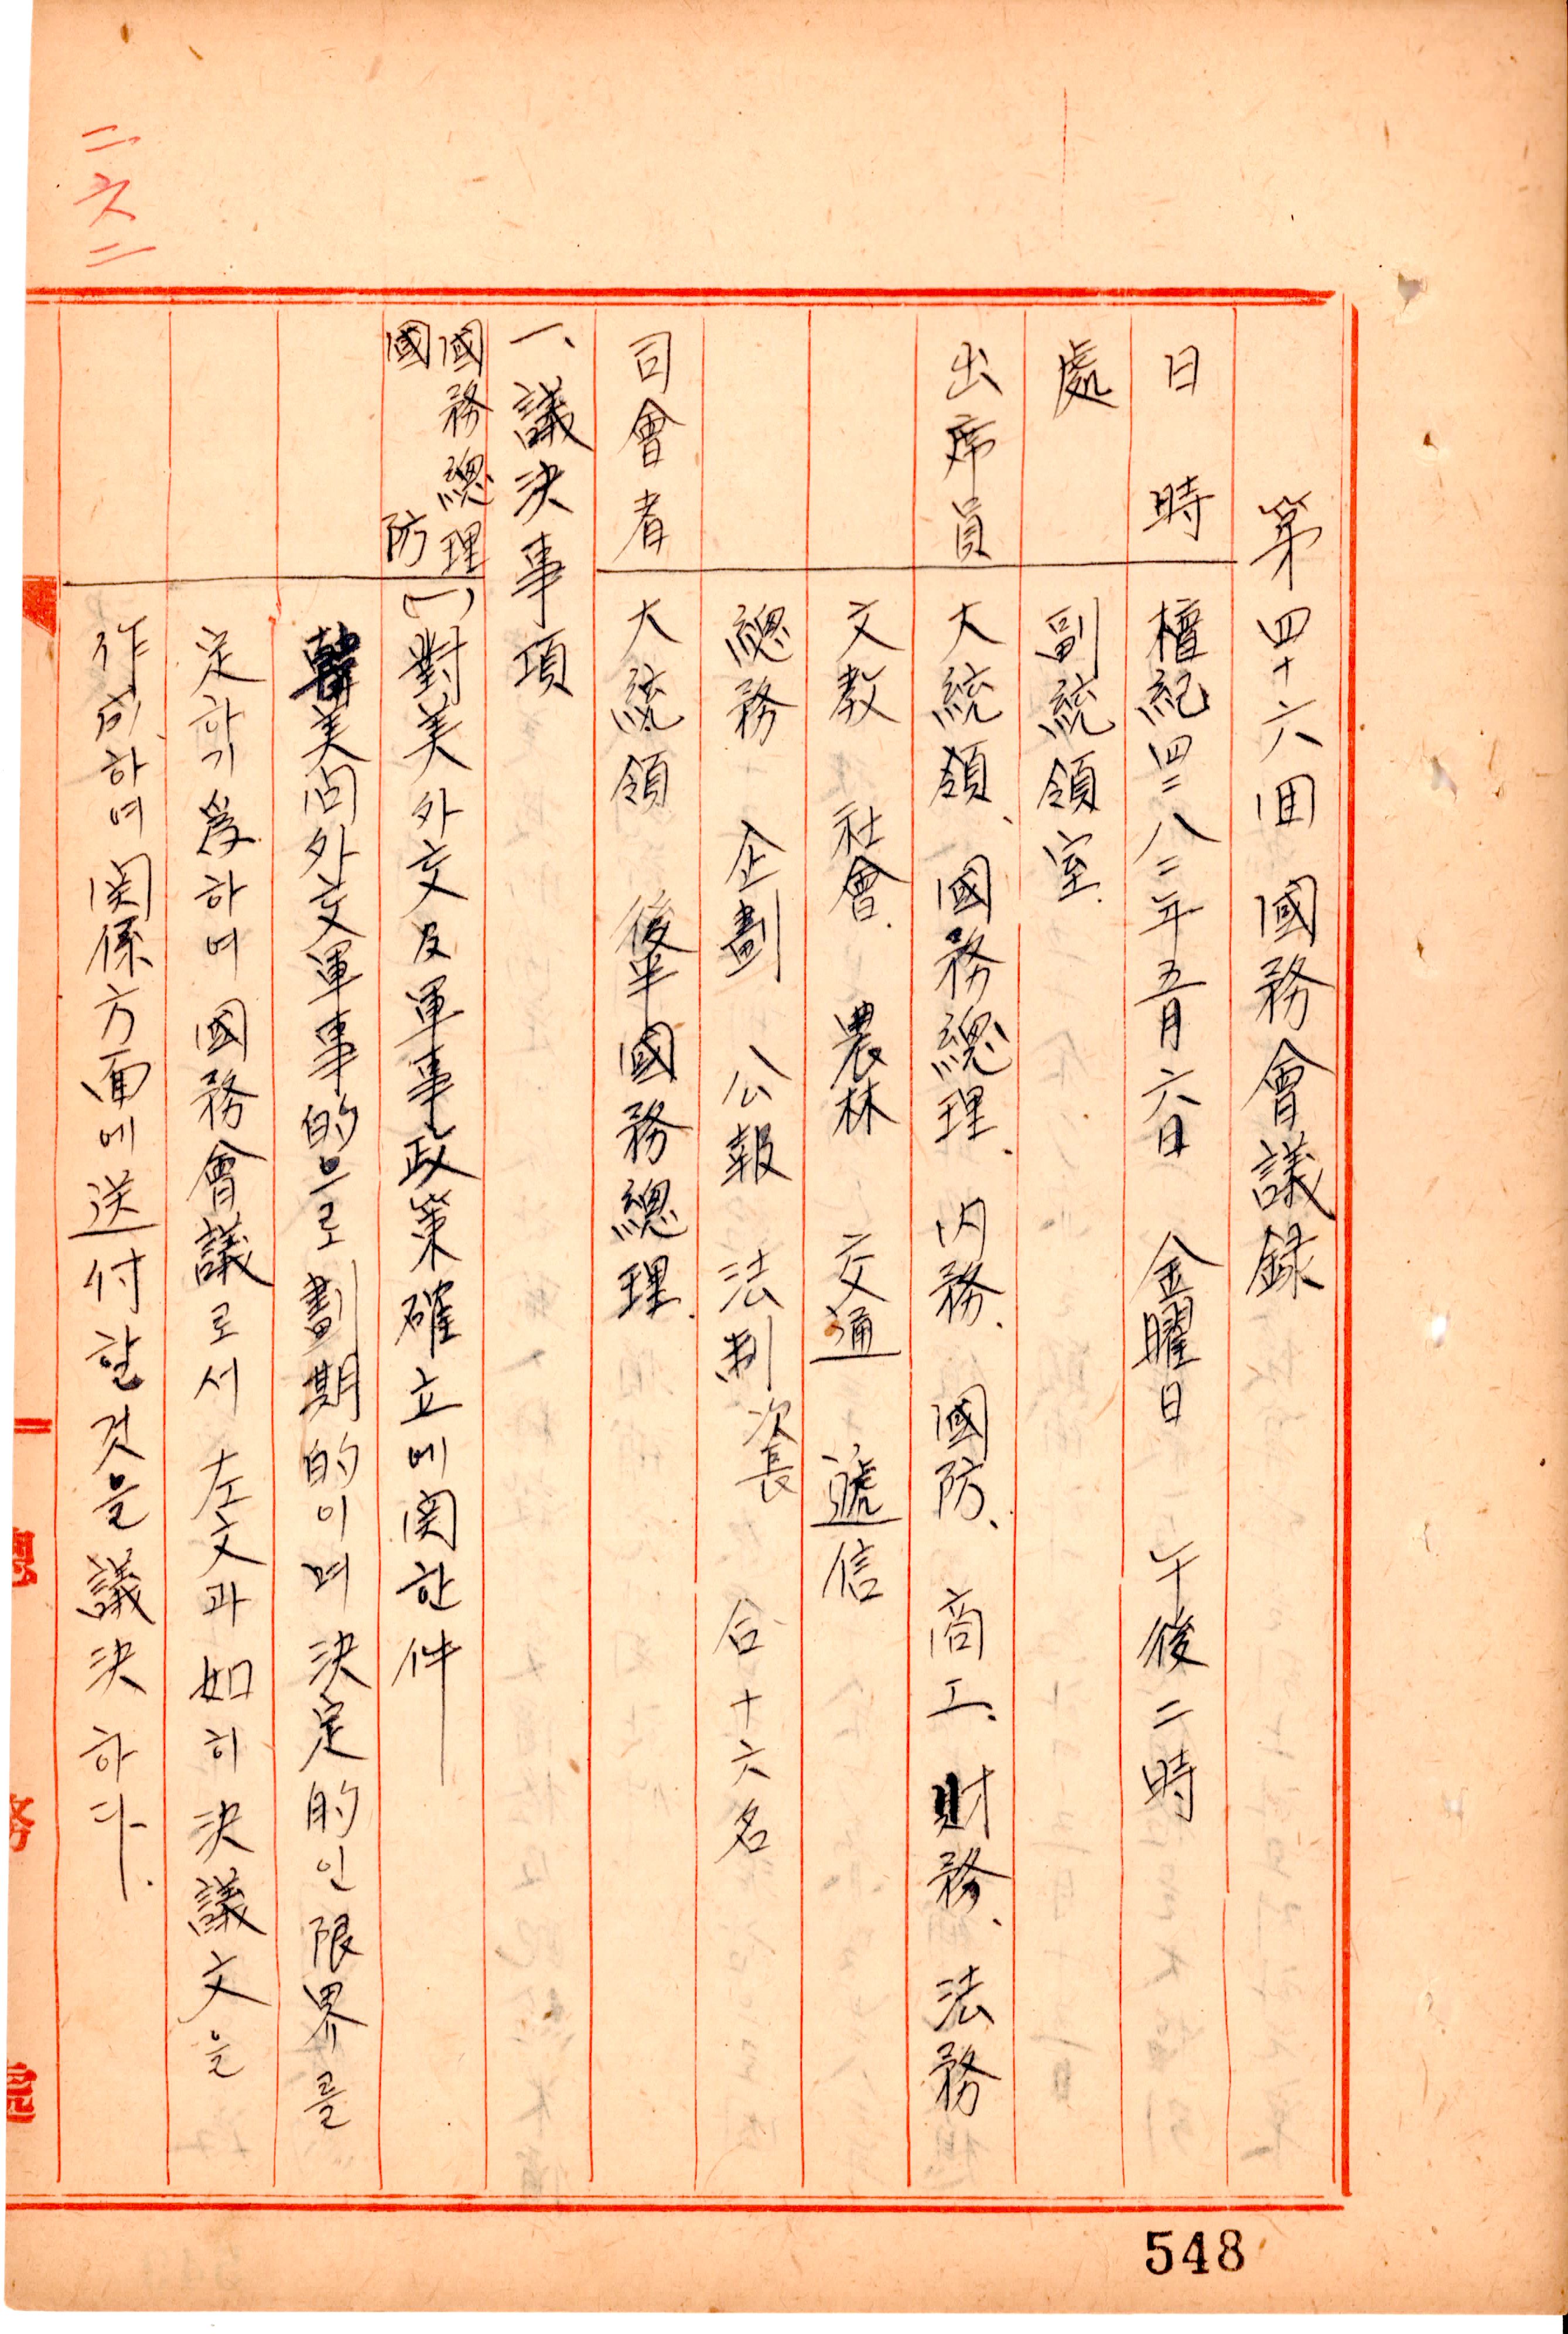 第四十六回 國務會議録
日時 檀紀四二八二年五月六日 金曜日 午後二時
處 副統領室.
出席員 大統領、國務總理、内務、國防、商工、財務、法務
文教 社會、農林 交通 遞信
總務 企劃 公報 法制次長 合十六名
司會者 大統領 後半國務總理.
一、議決事項
國務總理
國防
(一)對美外交及軍事政策確立에関한件
韓美间外交軍事的으로劃期的이며決定的인限界를
定하기爲하여國務會議로서 左文과如히決議文을
作成하여関係方面에送付할것을議決하다.
二六二
總務處
548